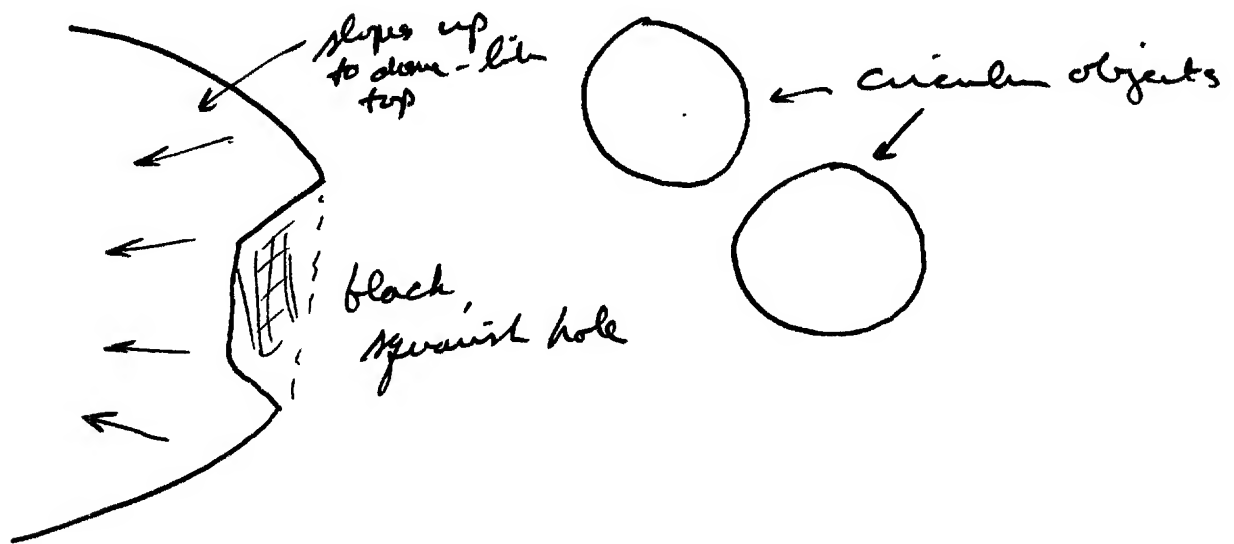 slopes up
to dome-like
top
circular objects
black,
squarish hole